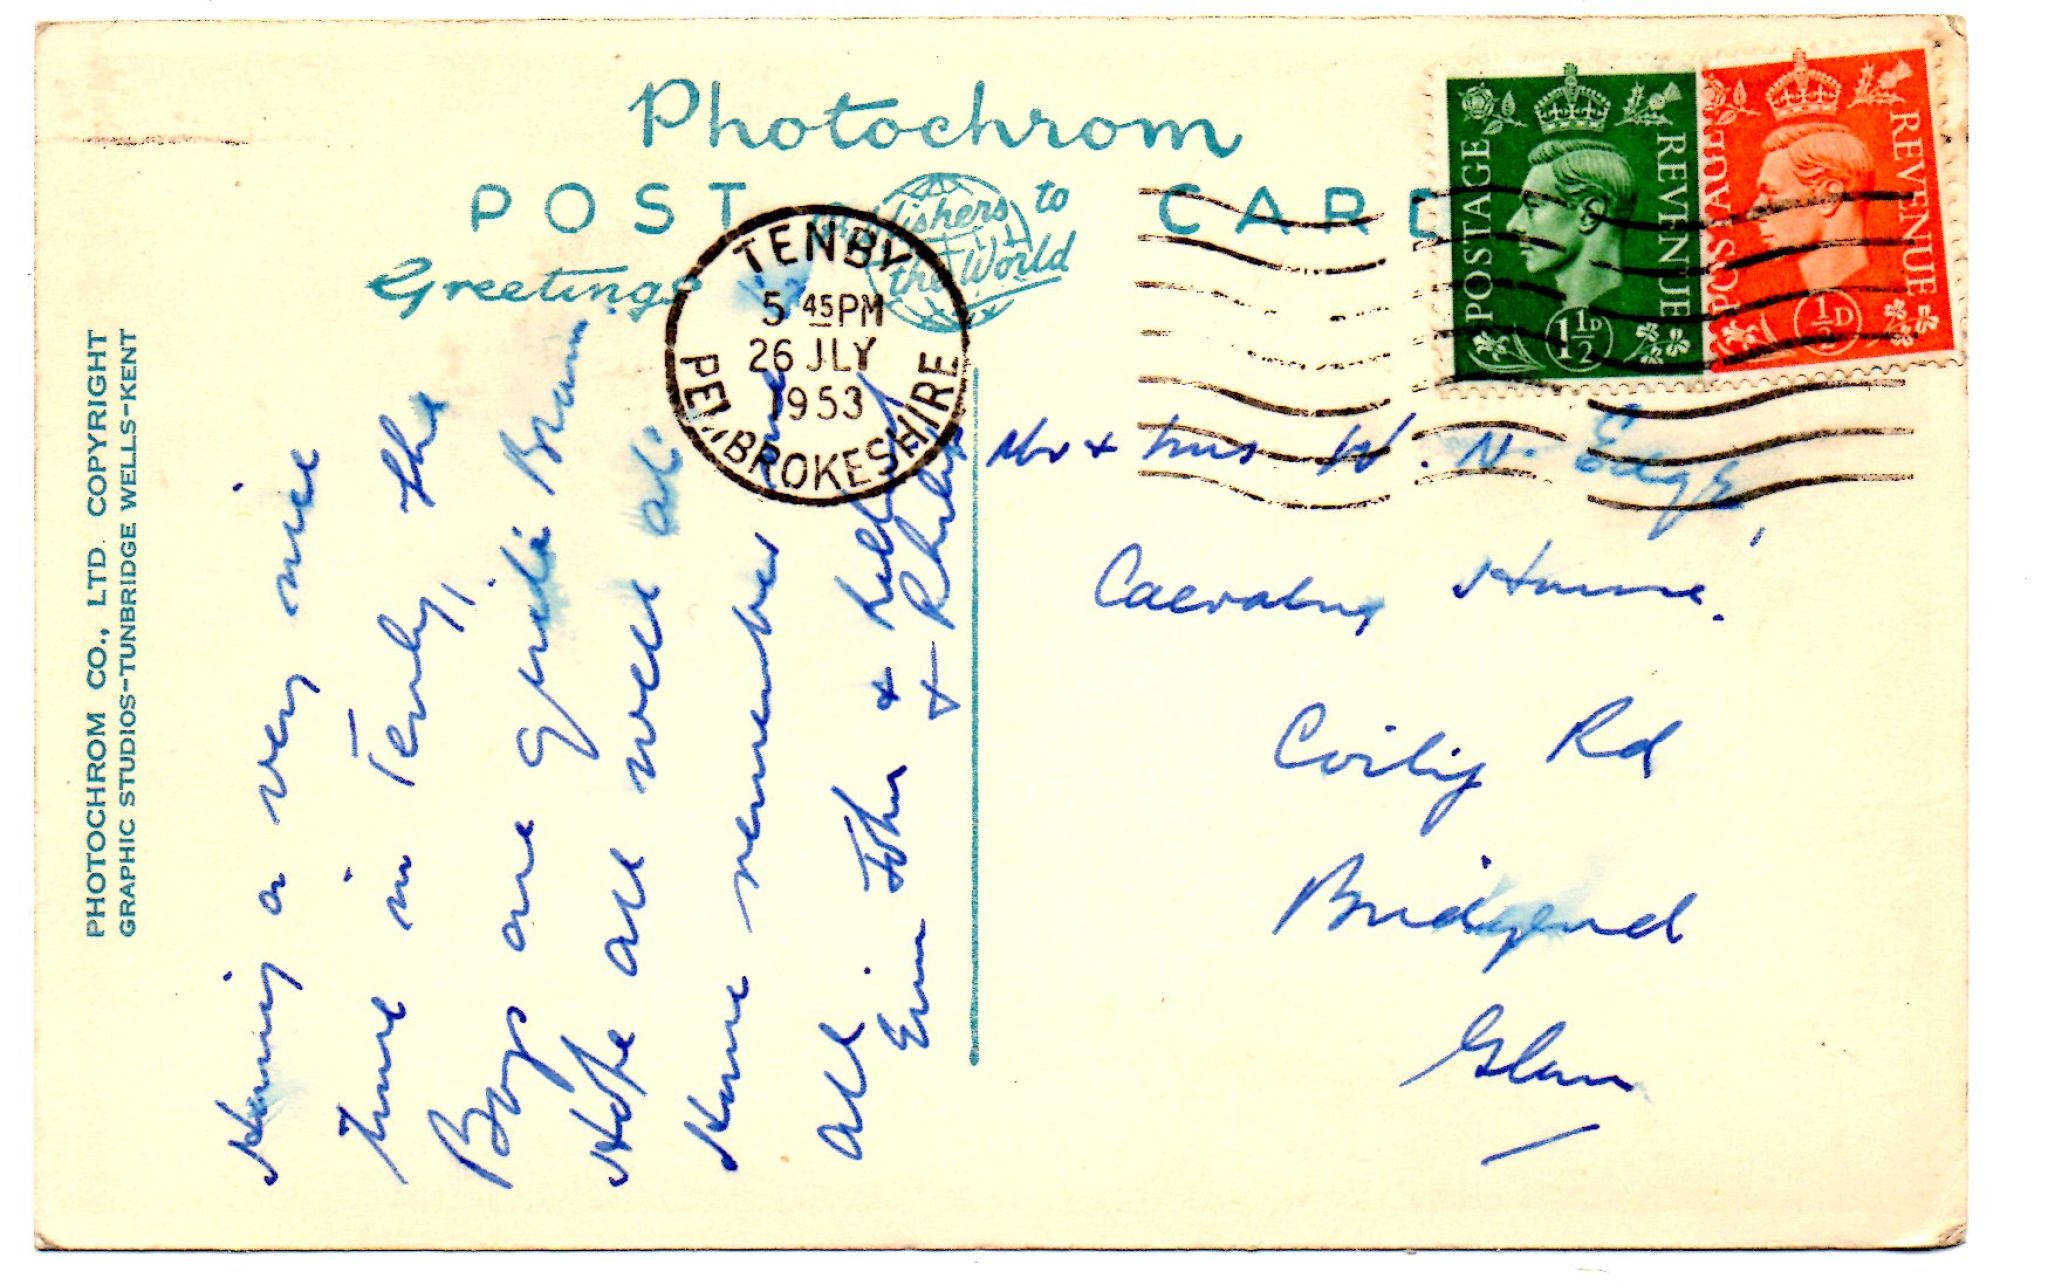 Photochrom
POST CARD
Publishers to
the World
Greetings
TENBY
5 45PM
26 JLY
1953
PEMBROKESHIRE
POSTAGE REVENUE
1½D
POSTAGE REVENUE
½D
PHOTOCHROM CO., LTD. COPYRIGHT
GRAPHIC STUDIOS-TUNBRIDGE WELLS-KENT
Having a very nice
time in Tenby, the
Boys are quite Brown.
Hope all well at
Home remember me
all
John &
& Philip
Mr & Mrs W. N. Edge,
House.
Coity Rd
Bridgend
Glam